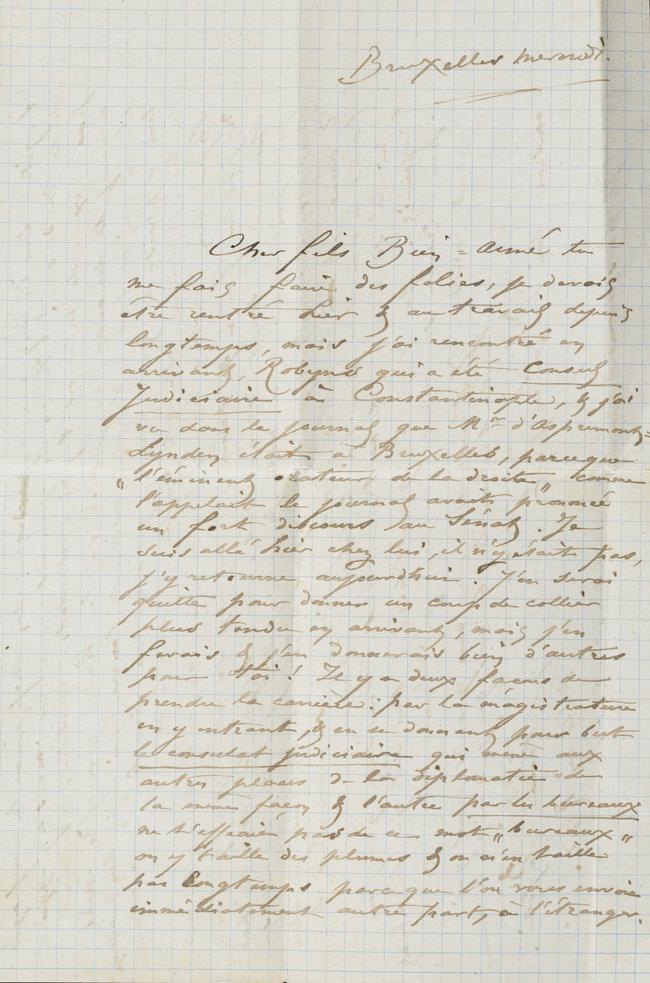 Bruxelles mercredi.
Cher fils Bien-aimé tu
me fais faire des folies, je devais
être rentré hier & au travail depuis
longtemps, mais j'ai rencontré en
arrivant, Robyns qui a été Consul
Judiciaire à Constantinople, & j'ai
vu dans le journal que Mr d'Aspremont-
Lynden était à Bruxelles, parceque
"l'éminent orateur de la droite" comme
l'appelait le journal avait prononcé
un fort discours au Sénat. Je
suis allé hier chez lui, il n'y était pas,
j'y retourne aujourdhui. J'en serai
quitte pour donner un coup de collier
plus tendu en arrivant, mais j'en
ferais & j'en donnerais bien d'autres
pour Toi! Il y a deux façons de
prendre la carrière: par la magistrature
en y entrant, & en se donnant pour but
le consulat judiciaire qui mène aux
autres places de la diplomatie de
la même façon & l'autre par les bureaux
ne t'effraie pas de ce mot "bureaux"
on y taille des plumes & on n'en taille
pas longtemps parceque l'on vous envoie
immédiatement autre part, à l'étranger.